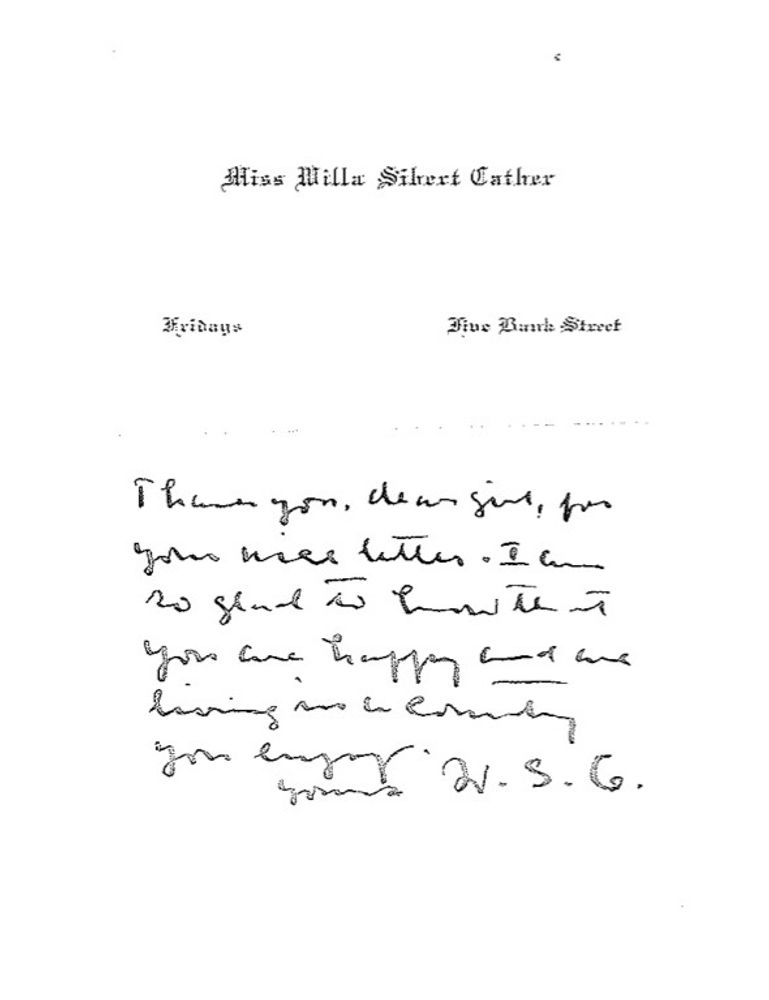 Miss Willa Sibert Cather
Fridays Five Bank Street
Thank you, dear girl, for
your nice letter. I am
so glad to know that
you are happy and are
living in a country
you enjoy.
yours W. S. C.